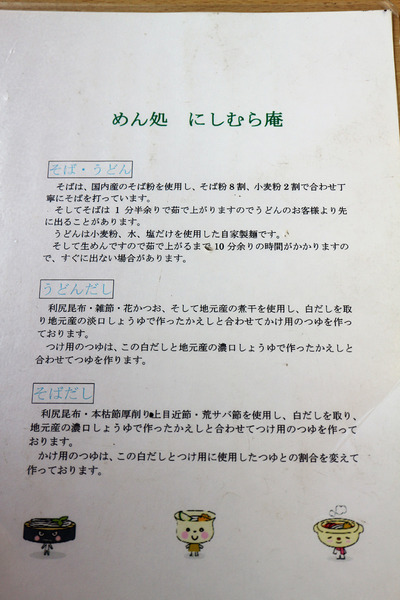 めん処　にしむら庵
そば・うどん
そばは、国内産のそば粉を使用し、そば粉８割、小麦粉２割で合わせ丁
寧にそばを打っています。
そしてそばは 1 分半余りで茹で上がりますのでうどんのお客様より先
に出ることがあります。
うどんは小麦粉、水、塩だけを使用した自家製麺です。
そして生めんですので茹で上がるまで 10 分余りの時間がかかりますの
で、すぐに出ない場合があります。
うどんだし
利尻昆布・雑節・花かつお、そして地元産の煮干を使用し、白だしを取
り地元産の淡口しょうゆで作ったかえしと合わせてかけ用のつゆを作っ
ております。
つけ用のつゆは、この白だしと地元産の濃口しょうゆで作ったかえしと
合わせてつゆを作ります。
そばだし
利尻昆布・本枯節厚削り・上目近節・荒サバ節を使用し、白だしを取り、
地元産の濃口しょうゆで作ったかえしと合わせてつけ用のつゆを作って
おります。
かけ用のつゆは、この白だしとつけ用に使用したつゆとの割合を変えて
作っております。